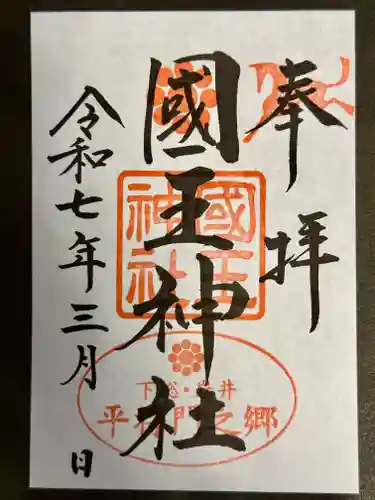 奉拝
國王神社
國王神社
下総・岩井
平将門之郷
令和七年三月 日